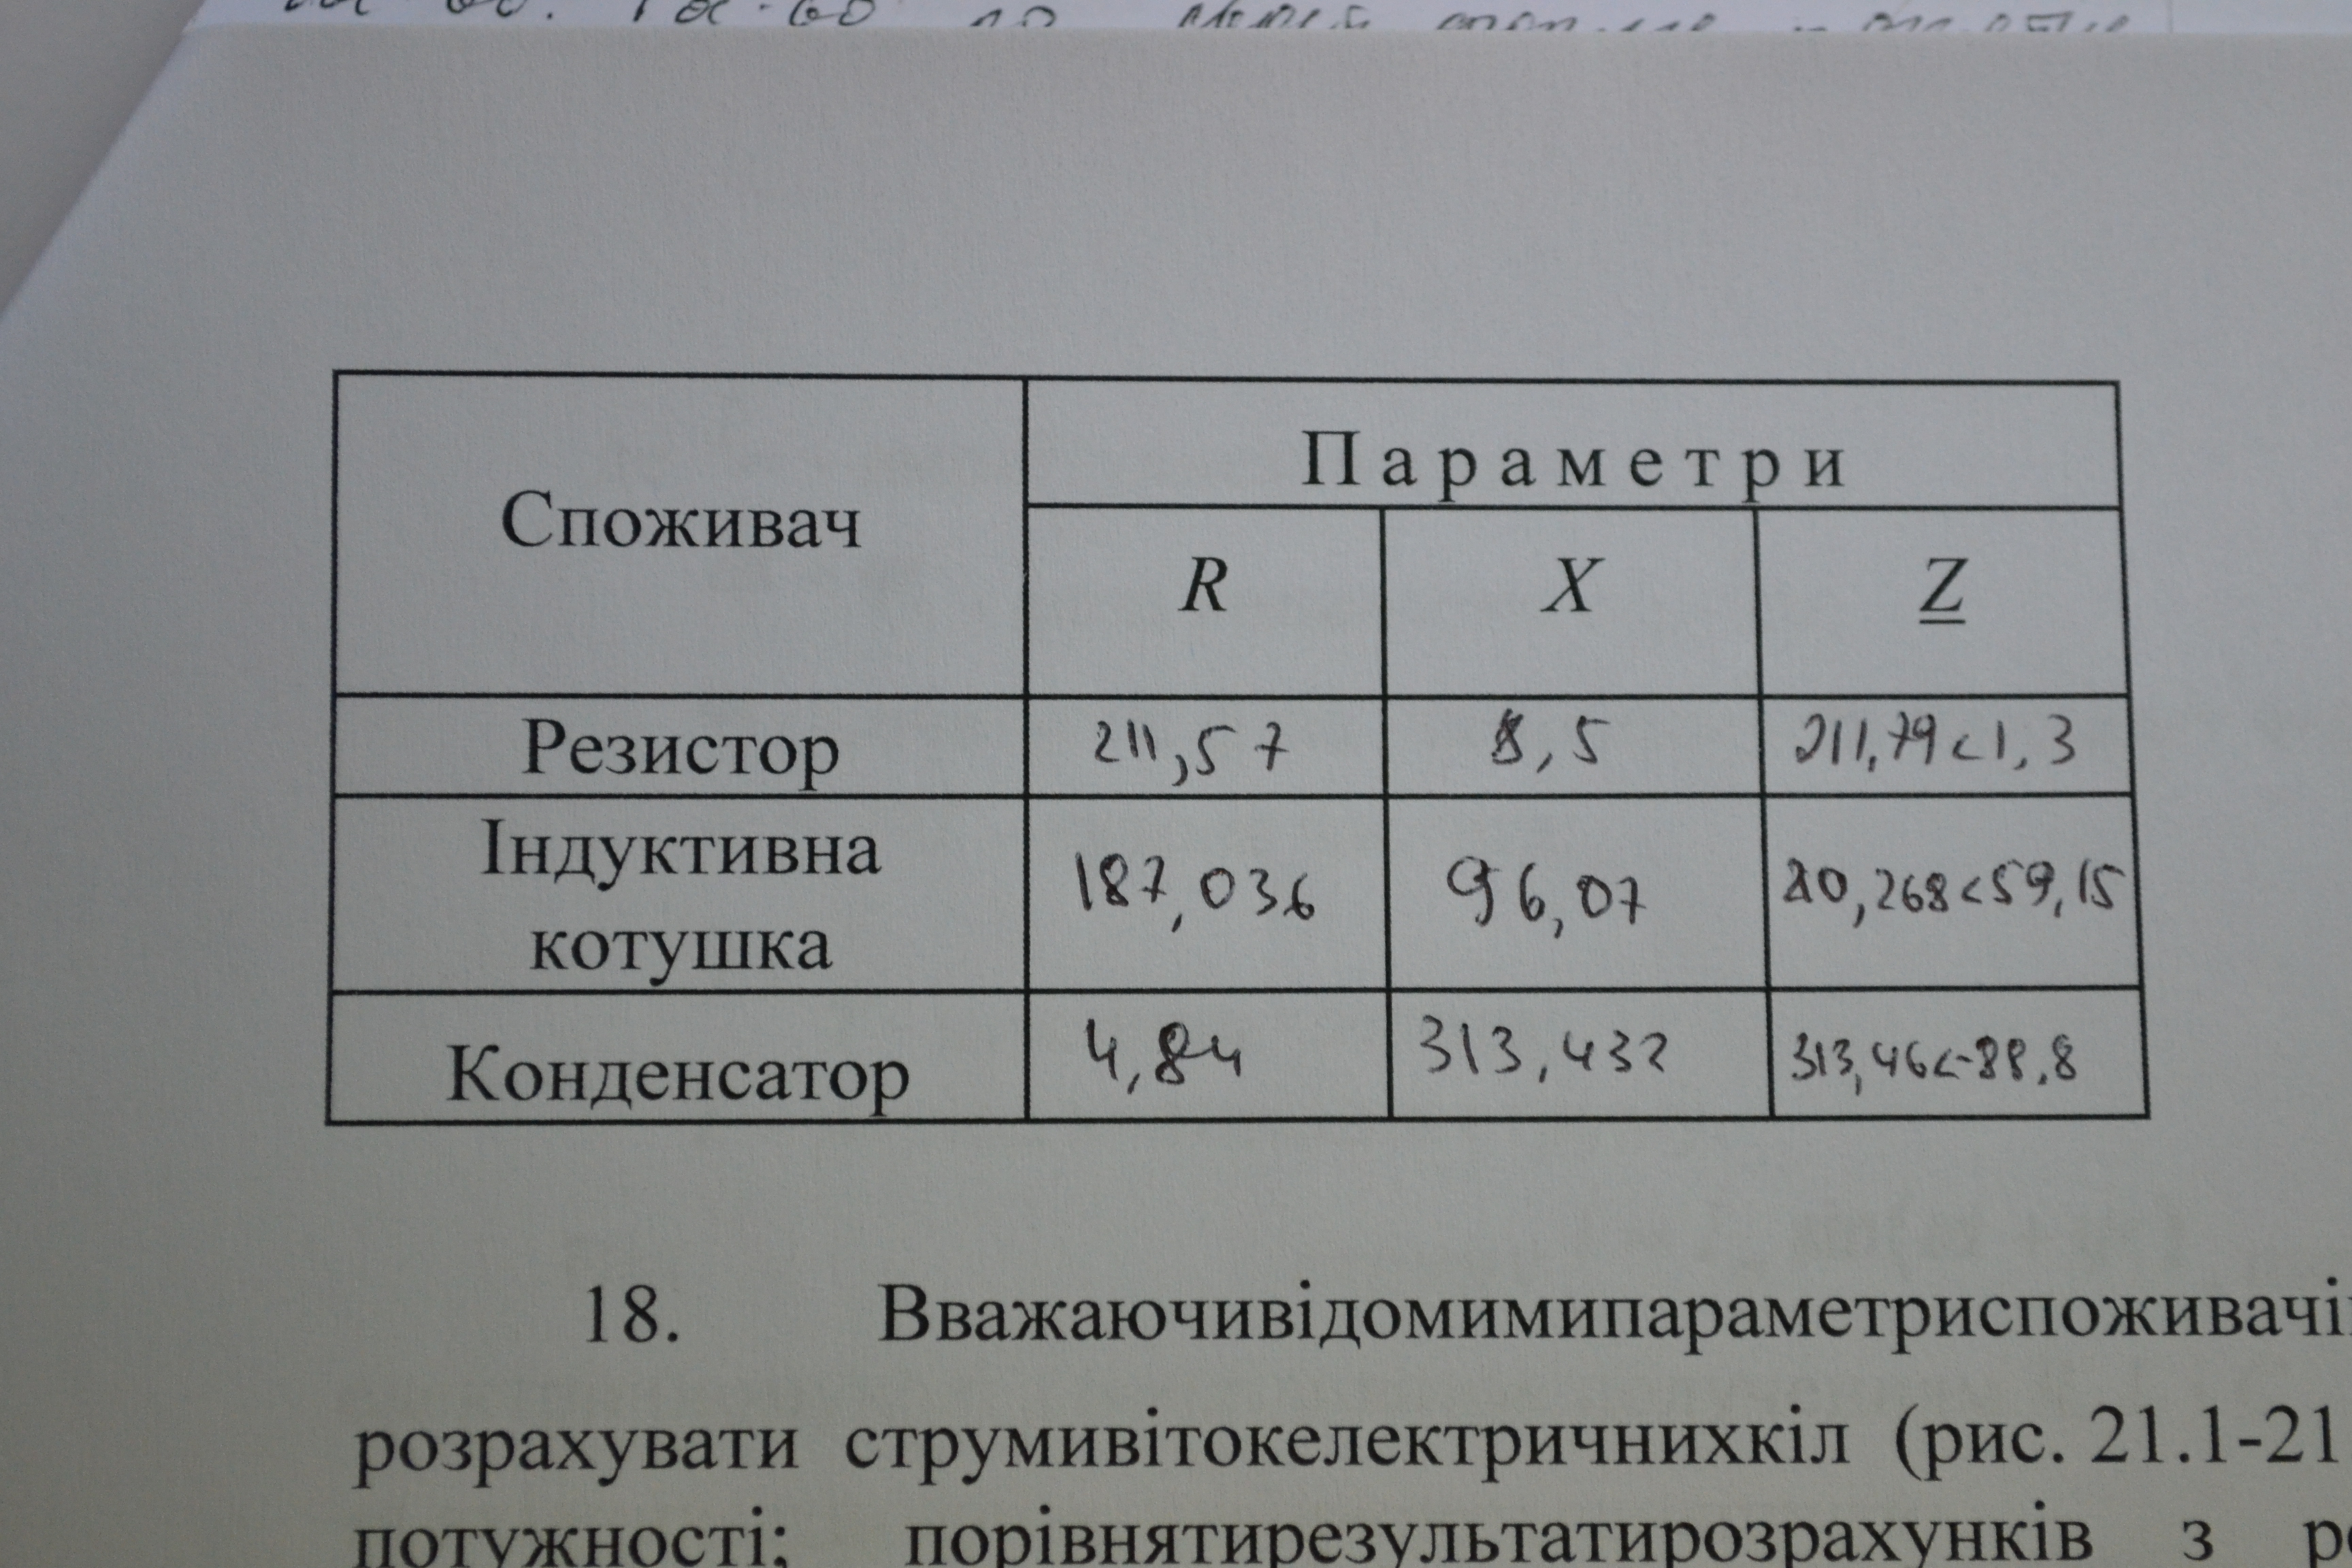 Споживач
Параметри
R X Z
Резистор 211,57 8,5 211,79<1,3
Індуктивна
котушка
187,036 96,07 20,268<59,15
Конденсатор 4,84 313,432 313,46<-88,8
18. Вважаючивідомимипараметриспоживачі
розрахувати струмивітокелектричнихкіл (рис. 21.1-21
потужності; порівнятирезультатирозрахунків з р